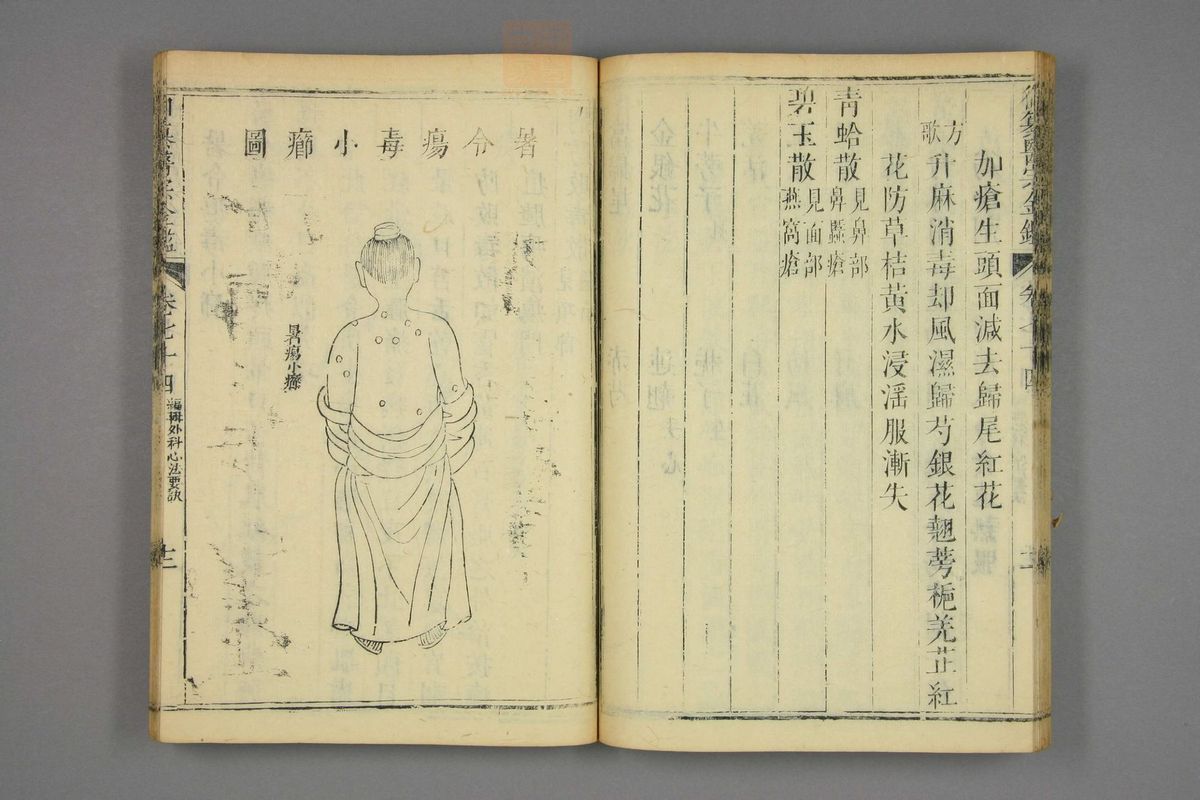 加瘡生頭面減去歸尾紅花
方歌
升麻消毒却風濕歸芍銀花翹蒡梔羌芷紅
花防草桔黃水浸淫服漸失
青蛤散 見鼻部
鼻䘌瘡
碧玉散 見面部
燕窩瘡
暑令瘍毒小癤圖
暑瘍小癤
御纂醫宗金鑑
卷七十四
編輯外科心法要訣